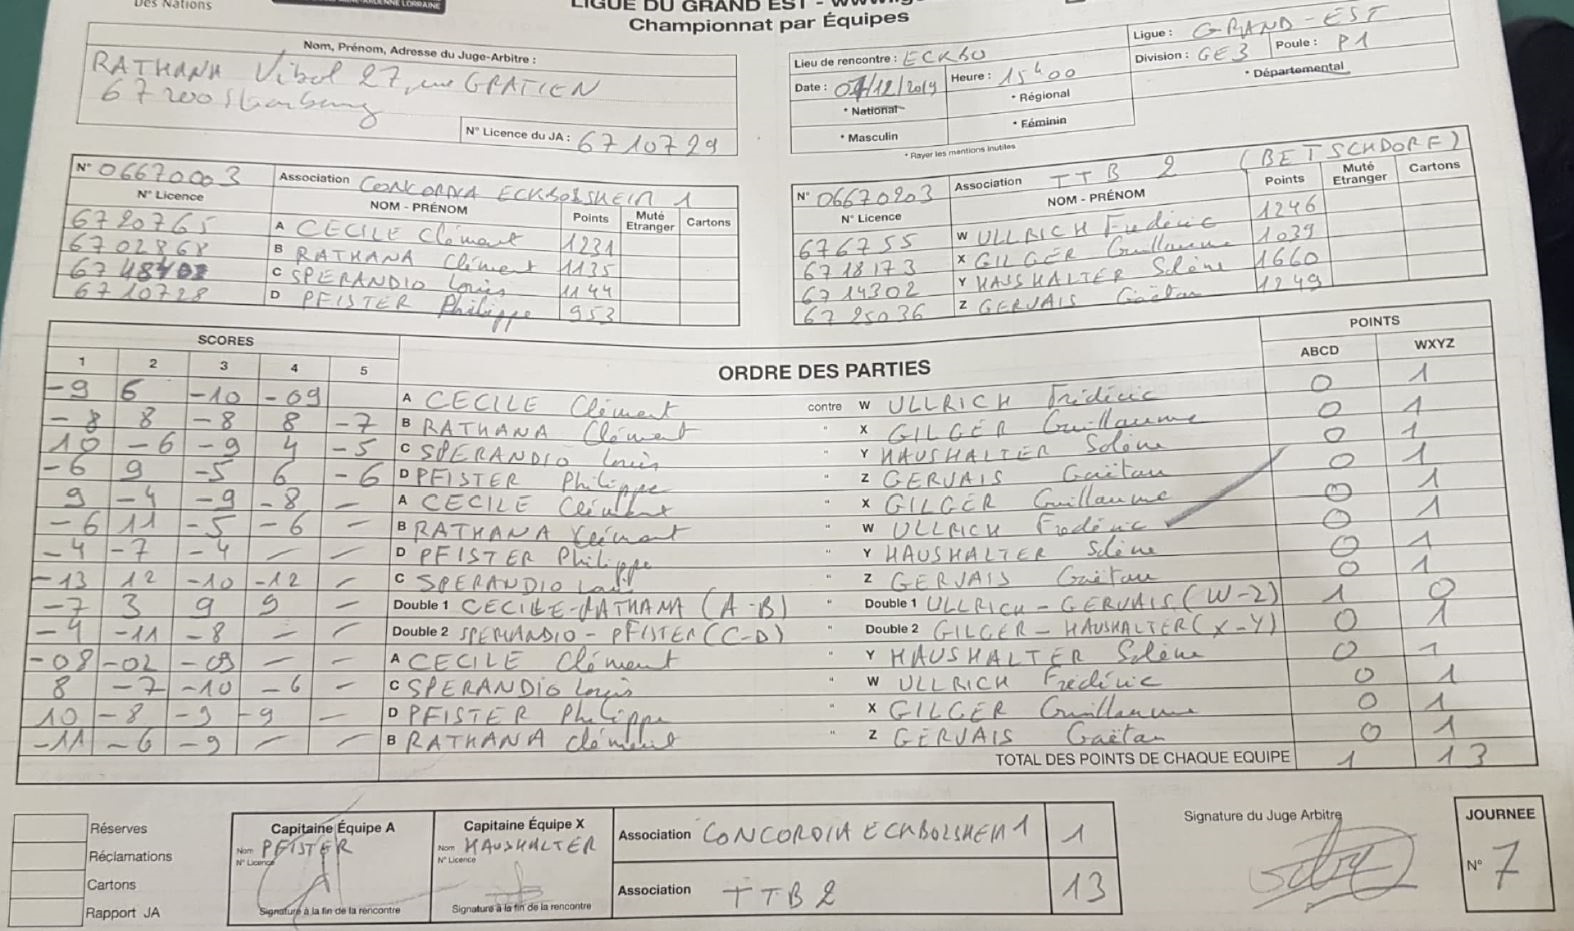 Des Nations
LIGUE DU GRAND EST - www.
Championnat par Équipes
Nom, Prénom, Adresse du Juge-Arbitre :
RATHANA Vibol 27, rue GRATIEN
67200 Strasbourg
N° Licence du JA : 6710729
Lieu de rencontre : ECKBO
Ligue : GRAND-EST
Date : 07/12/2019 Heure : 15h00
Division : GE3 Poule : P1
* National * Régional * Départemental
* Masculin * Féminin
* Rayer les mentions inutiles
N° 06670003 Association CONCORDIA ECKBOLSHEIM 1
N° Licence NOM - PRÉNOM Points Muté Etranger Cartons
6720765 A CECILE Clément 1231
6702868 B RATHANA Clément 1135
C SPERANDIO Louis 1144
6710728 D PFISTER Philippe 953
N° 06670203 Association TTB 2 (BETSCHDORF)
N° Licence NOM - PRÉNOM Points Muté Etranger Cartons
676755 W ULLRICH Frédéric 1246
6718173 X GILGER Guillaume 1039
6714302 Y HAUSHALTER Solène 1660
6725036 Z GERVAIS Gaëtan 1249
SCORES ORDRE DES PARTIES POINTS
1 2 3 4 5 ABCD WXYZ
-9 6 -10 -09 A CECILE Clément contre W ULLRICH Frédéric 0 1
-8 8 -8 8 -7 B RATHANA Clément " X GILGER Guillaume 0 1
10 -6 -9 4 -5 C SPERANDIO Louis " Y HAUSHALTER Solène 0 1
-6 9 -5 6 -6 D PFISTER Philippe " Z GERVAIS Gaëtan 0 1
9 -4 -9 -8 - A CECILE Clément " X GILGER Guillaume 0 1
-6 11 -5 -6 - B RATHANA Clément " W ULLRICH Frédéric 0 1
-4 -7 -4 - - D PFISTER Philippe " Y HAUSHALTER Solène 0 1
-13 12 -10 -12 - C SPERANDIO " Z GERVAIS Gaëtan 0 1
-7 3 9 9 - Double 1 CECILE-RATHANA (A-B) " Double 1 ULLRICH-GERVAIS (W-Z) 1 0
-4 -11 -8 - - Double 2 SPERANDIO-PFISTER (C-D) " Double 2 GILGER-HAUSHALTER (X-Y) 0 1
-08 -02 -09 - - A CECILE Clément " Y HAUSHALTER Solène 0 1
8 -7 -10 -6 - C SPERANDIO Louis " W ULLRICH Frédéric 0 1
10 -8 -9 -9 - D PFISTER Philippe " X GILGER Guillaume 0 1
-11 -6 -9 - - B RATHANA Clément " Z GERVAIS Gaëtan 0 1
TOTAL DES POINTS DE CHAQUE EQUIPE 1 13
Réserves
Réclamations
Cartons
Rapport JA
Capitaine Équipe A
Nom PFISTER
N° Licence
Signature à la fin de la rencontre
Capitaine Équipe X
Nom HAUSHALTER
N° Licence
Signature à la fin de la rencontre
Association CONCORDIA ECKBOLSHEIM 1 1
Association TTB 2 13
Signature du Juge Arbitre
JOURNEE
N° 7